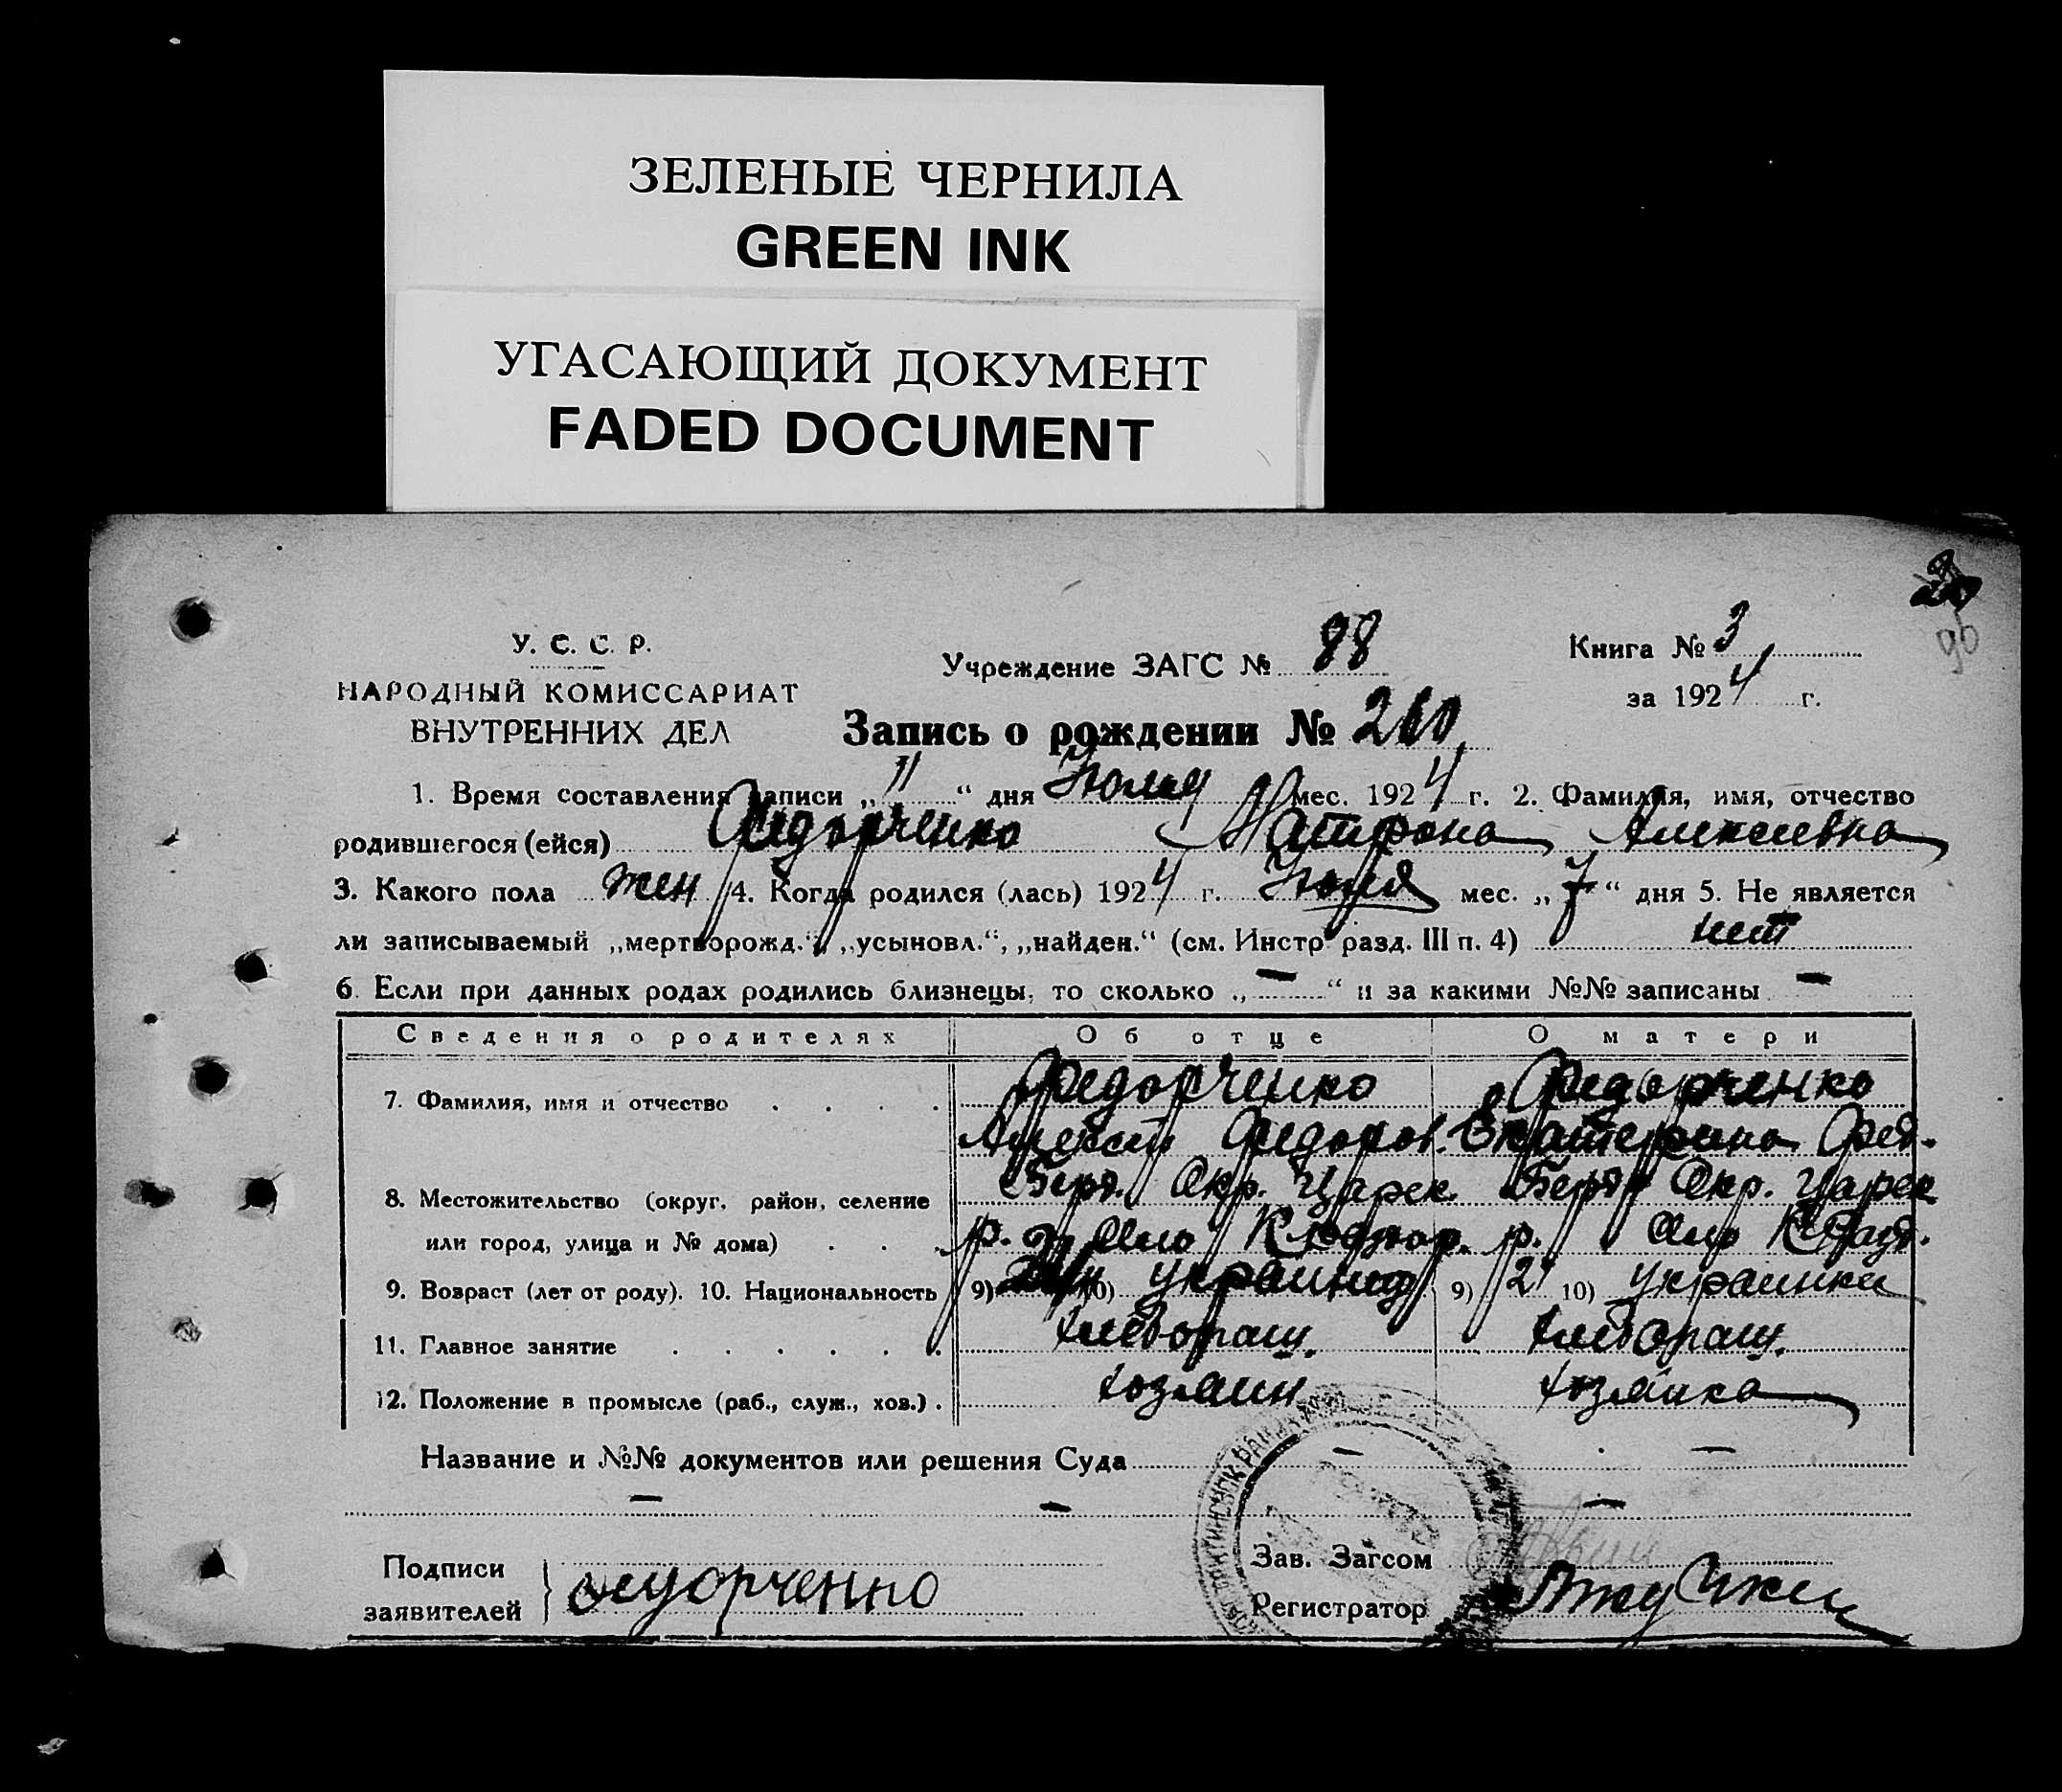 ЗЕЛЕНЫЕ ЧЕРНИЛА
GREEN INK
УГАСАЮЩИЙ ДОКУМЕНТ
FADED DOCUMENT
96
У. С. С. Р.
НАРОДНЫЙ КОМИССАРИАТ
ВНУТРЕННИХ ДЕЛ
Учреждение ЗАГС № 88
Книга № 3
за 1924 г.
Запись о рождении № 260
1. Время составления записи „11“ дня Июля мес. 1924 г. 2. Фамилия, имя, отчество
родившегося (ейся) Федорченко Матрона Алексеевна
3. Какого пола жен 4. Когда родился (лась) 1924 г. Июля мес. „7“ дня 5. Не является
ли записываемый „мертворожд.“, „усыновл.“, „найден.“ (см. Инстр. разд. III п. 4) нет
6. Если при данных родах родились близнецы, то сколько „—“ и за какими №№ записаны —
Сведения о родителях Об отце О матери
7. Фамилия, имя и отчество Федорченко Федорченко
Алексей Федоров. Екатерина Фед.
8. Местожительство (округ, район, селение Берд. Окр. Царек. Берд. Окр. Царек
или город, улица и № дома) р. р.
9. Возраст (лет от роду). 10. Национальность 9) 10) украинец 9) 21 10) украинка
11. Главное занятие хлебопаш. хлебопаш.
12. Положение в промысле (раб., служ., хоз.) хозяин хозяйка
Название и №№ документов или решения Суда — —
— — —
Подписи
заявителей Федорченко
Зав. Загсом
Регистратор